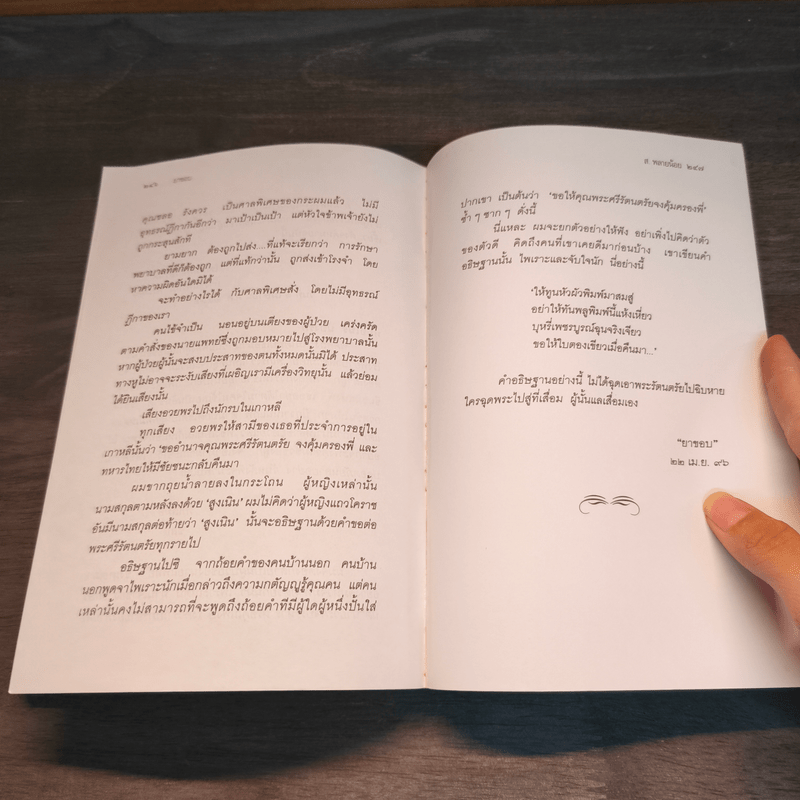 ๒๔๖ ยาขอบ
คุณชลอ รังควร เป็นศาลพิเศษของกระผมแล้ว ไม่มี
อุทธรณ์ฎีกากันอีกว่า มาเป้าเป็นเป้า แต่หัวใจข้าพเจ้ายังไม่
ถูกกระสุนสักที
ยามยาก ต้องถูกไปส่ง....ที่แท้จะเรียกว่า การรักษา
พยาบาลที่ดีก็ต้องถูก แต่ที่แท้กว่านั้น ถูกส่งเข้าโรงจำ โดย
หาความผิดอันใดมิได้
จะทำอย่างไรได้ กับศาลพิเศษสั่ง โดยไม่มีอุทธรณ์
ฎีกาของเรา
คนใช้จำเป็น นอนอยู่บนเตียงของผู้ป่วย เคร่งครัด
ตามคำสั่งของนายแพทย์ซึ่งถูกมอบหมายไปสู่โรงพยาบาลนั้น
หากผู้ป่วยผู้นั้นจะสงบประสาทของตนทั้งหมดนั้นมิได้ ประสาท
ทางหูไม่อาจจะระงับเสียงที่เผอิญเรามีเครื่องวิทยุนั้น แล้วย่อม
ได้ยินเสียงนั้น
เสียงอวยพรไปถึงนักรบในเกาหลี
ทุกเสียง อวยพรให้สามีของเธอที่ประจำการอยู่ใน
เกาหลีนั้นว่า 'ขออำนาจคุณพระศรีรัตนตรัย จงคุ้มครองพี่ และ
ทหารไทยให้มีชัยชนะกลับคืนมา
ผมขากถุยน้ำลายลงในกระโถน ผู้หญิงเหล่านั้น
นามสกุลตามหลังลงด้วย 'สูงเนิน' ผมไม่คิดว่าผู้หญิงแถวโคราช
อันมีนามสกุลต่อท้ายว่า 'สูงเนิน' นั้นจะอธิษฐานด้วยคำขอต่อ
พระศรีรัตนตรัยทุกรายไป
อธิษฐานไปซิ จากถ้อยคำของคนบ้านนอก คนบ้าน
นอกพูดจาไพเราะนักเมื่อกล่าวถึงความกตัญญูรู้คุณคน แต่คน
เหล่านั้นคงไม่สามารถที่จะพูดถึงถ้อยคำที่มีผู้ใดผู้หนึ่งปั้นใส่
ส. พลายน้อย ๒๔๗
ปากเขา เป็นต้นว่า 'ขอให้คุณพระศรีรัตนตรัยจงคุ้มครองพี่'
ซ้ำ ๆ ซาก ๆ ดั่งนี้
นี่แหละ ผมจะยกตัวอย่างให้ฟัง อย่าเพิ่งไปคิดว่าตัว
ของตัวดี คิดถึงคนที่เขาเคยดีมาก่อนบ้าง เขาเขียนคำ
อธิษฐานนั้น ไพเราะและจับใจนัก นี่อย่างนี้
'ให้ทูนหัวผัวพิมพ์มาสมสู่
อย่าให้ทันพลูพิมพ์นี้แห้งเหี่ยว
บุหรี่เพชรบูรณ์ฉุนจริงเจียว
ขอให้ใบตองเขียวเมื่อคืนมา...'
คำอธิษฐานอย่างนี้ ไม่ได้ฉุดเอาพระรัตนตรัยไปฉิบหาย
ใครฉุดพระไปสู่ที่เสื่อม ผู้นั้นแลเสื่อมเอง
"ยาขอบ"
๒๒ เม.ย. ๙๖